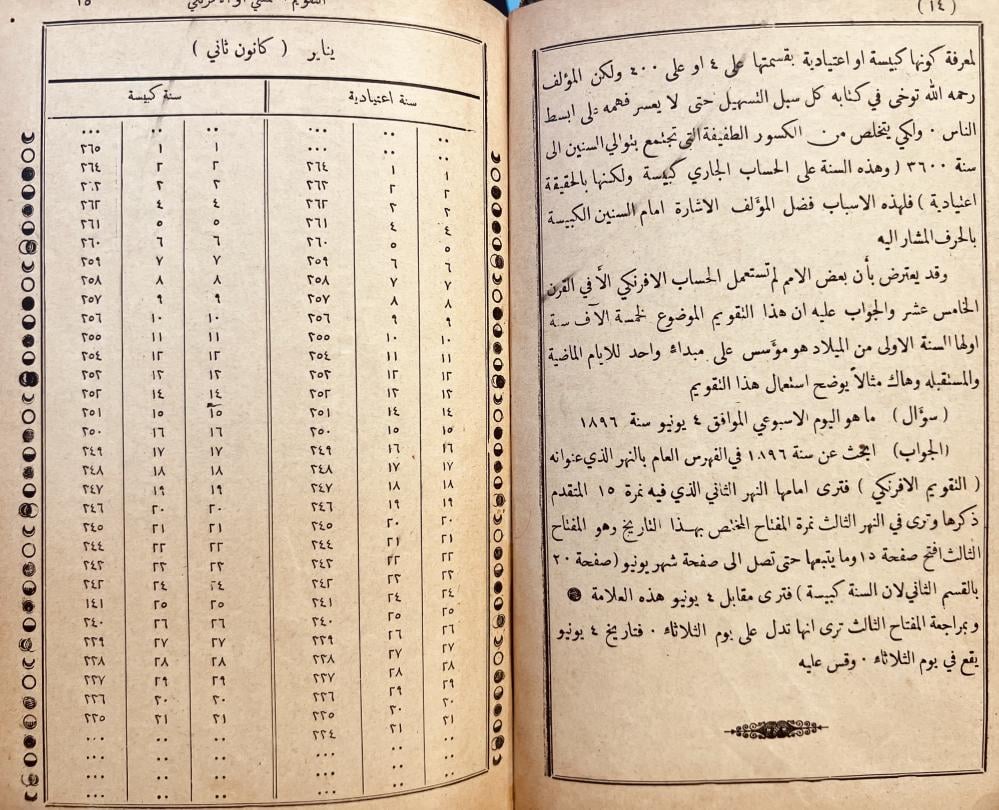 (١٤)
لمعرفة كونها كبيسة او اعتيادية بقسمتها على ٤ او على ٤٠٠ ولكن المؤلف
رحمه الله توخى في كتابه كل سبل التسهيل حتى لا يعسر فهمه على ابسط
الناس ٠ ولكي يتخلص من الكسور الطفيفة التي تجتمع بتوالي السنين الى
سنة ٣٦٠٠ ( وهذه السنة على الحساب الجاري كبيسة ولكنها بالحقيقة
اعتيادية ) فلهذه الاسباب فضل المؤلف الاشارة امام السنين الكبيسة
بالحرف المشار اليه
وقد يعترض بأن بعض الامم لم تستعمل الحساب الافرنكي الاّ في القرن
الخامس عشر والجواب عليه ان هذا التقويم الموضوع لخمسة الآف سنة
اولها السنة الاولى من الميلاد هو مؤسس على مبداء واحد للايام الماضية
والمستقبله وهاك مثالاً يوضح استعمال هذا التقويم
(سوؤال) ما هو اليوم الاسبوعي الموافق ٤ يونيو سنة ١٨٩٦
(الجواب) ابحث عن سنة ١٨٩٦ في الفهرس العام بالنهر الذي عنوانه
( التقويم الافرنكي ) فترى امامها النهر الثاني الذي فيه نمرة ١٥ المتقدم
ذكرها وترى في النهر الثالث نمرة المفتاح المختص بهذا التاريخ وهو المفتاح
الثالث افتح صفحة ١٥ وما يتبعها حتى تصل الى صفحة شهر يونيو (صفحة ٢٠
بالقسم الثاني لان السنة كبيسة ) فترى مقابل ٤ يونيو هذه العلامة
وبمراجعة المفتاح الثالث ترى انها تدل على يوم الثلاثاء ٠ فتاريخ ٤ يونيو
يقع في يوم الثلاثاء ٠ وقس عليه
١٥
يناير ( كانون ثاني )
سنة اعتيادية سنة كبيسة
٠٠ ٠٠ ٠٠٠ ٠٠ ٠٠ ٠٠٠
٠٠ ٠٠ ٠٠٠ ١ ١ ٣٦٥
١ ١ ٣٦٤ ٢ ٢ ٣٦٤
٢ ٢ ٣٦٣ ٣ ٣ ٣٦٣
٣ ٣ ٣٦٢ ٤ ٤ ٣٦٢
٤ ٤ ٣٦١ ٥ ٥ ٣٦١
٥ ٥ ٣٦٠ ٦ ٦ ٣٦٠
٦ ٦ ٣٥٩ ٧ ٧ ٣٥٩
٧ ٧ ٣٥٨ ٨ ٨ ٣٥٨
٨ ٨ ٣٥٧ ٩ ٩ ٣٥٧
٩ ٩ ٣٥٦ ١٠ ١٠ ٣٥٦
١٠ ١٠ ٣٥٥ ١١ ١١ ٣٥٥
١١ ١١ ٣٥٤ ١٢ ١٢ ٣٥٤
١٢ ١٢ ٣٥٣ ١٣ ١٣ ٣٥٣
١٣ ١٣ ٣٥٢ ١٤ ١٤ ٣٥٢
١٤ ١٤ ٣٥١ ١٥ ١٥ ٣٥١
١٥ ١٥ ٣٥٠ ١٦ ١٦ ٣٥٠
١٦ ١٦ ٣٤٩ ١٧ ١٧ ٣٤٩
١٧ ١٧ ٣٤٨ ١٨ ١٨ ٣٤٨
١٨ ١٨ ٣٤٧ ١٩ ١٩ ٣٤٧
١٩ ١٩ ٣٤٦ ٢٠ ٢٠ ٣٤٦
٢٠ ٢٠ ٣٤٥ ٢١ ٢١ ٣٤٥
٢١ ٢١ ٣٤٤ ٢٢ ٢٢ ٣٤٤
٢٢ ٢٢ ٣٤٣ ٢٣ ٢٣ ٣٤٣
٢٣ ٢٣ ٣٤٢ ٢٤ ٢٤ ٣٤٢
٢٤ ٢٤ ٣٤١ ٢٥ ٢٥ ٣٤١
٢٥ ٢٥ ٣٤٠ ٢٦ ٢٦ ٣٤٠
٢٦ ٢٦ ٣٣٩ ٢٧ ٢٧ ٣٣٩
٢٧ ٢٧ ٣٣٨ ٢٨ ٢٨ ٣٣٨
٢٨ ٢٨ ٣٣٧ ٢٩ ٢٩ ٣٣٧
٢٩ ٢٩ ٣٣٦ ٣٠ ٣٠ ٣٣٦
٣٠ ٣٠ ٣٣٥ ٣١ ٣١ ٣٣٥
٣١ ٣١ ٣٣٤ ٠٠ ٠٠ ٠٠٠
٠٠ ٠٠ ٠٠٠ ٠٠ ٠٠ ٠٠٠
٠٠ ٠٠ ٠٠٠ ٠٠ ٠٠ ٠٠٠
٠٠ ٠٠ ٠٠٠ ٠٠ ٠٠ ٠٠٠